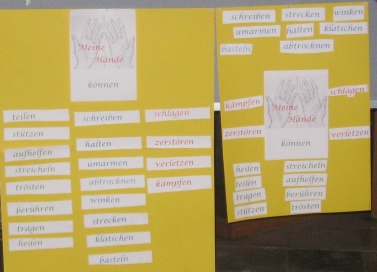 Meine
Hände
können
teilen schreiben schlagen
stützen
halten zerstören
aufhelfen
umarmen verletzen
streicheln
abtrocknen kämpfen
trösten
winken
berühren
strecken
tragen
klatschen
heilen
basteln
schreiben strecken winken
umarmen halten klatschen
basteln abtrocknen
schlagen
kämpfen
Meine
Hände
zerstören verletzen
können
heilen streicheln
teilen aufhelfen
tragen berühren
stützen trösten